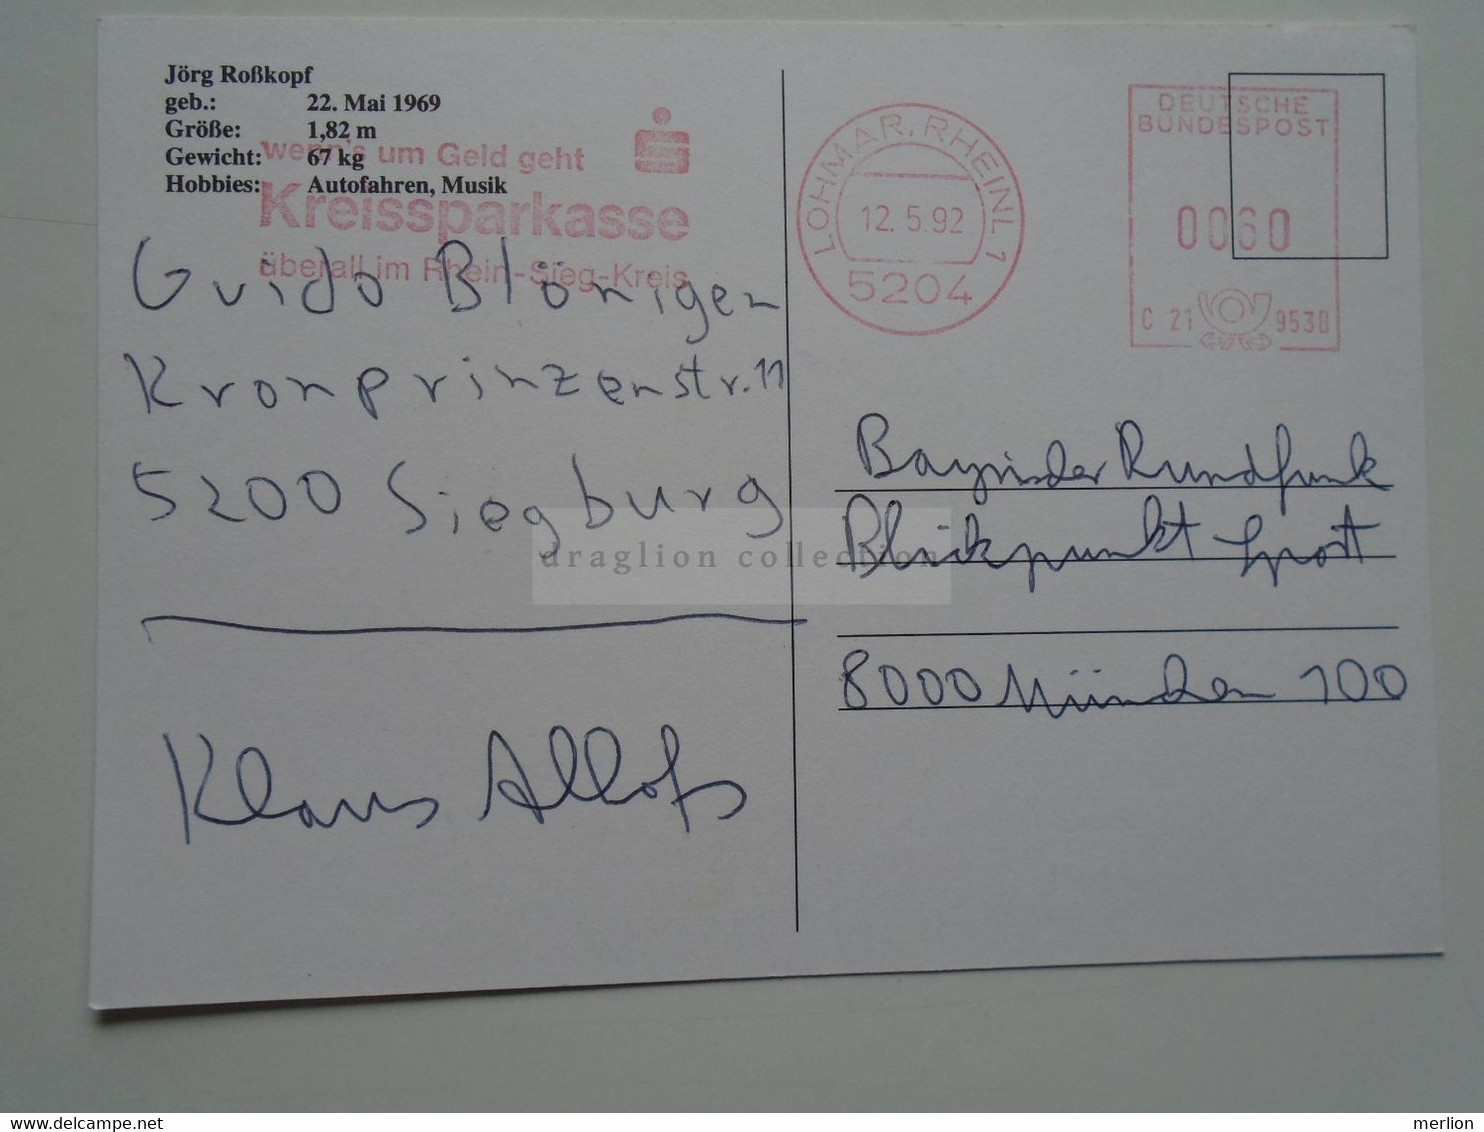 Jörg Roßkopf
geb.: 22. Mai 1969
Größe: 1,82 m
Gewicht: 67 kg
Hobbies: Autofahren, Musik
wenn's um Geld geht
Kreissparkasse
überall im Rhein-Sieg-Kreis
LOHMAR, RHEINL 1
12. 5. 92
5204
DEUTSCHE
BUNDESPOST
0060
C 21 9538
Guido Blönigen
Kronprinzenstr. 11
5200 Siegburg
Klaus Allofs
Bayrischer Rundfunk
Blickpunkt Sport
8000 München 100
draglion collection
merlion